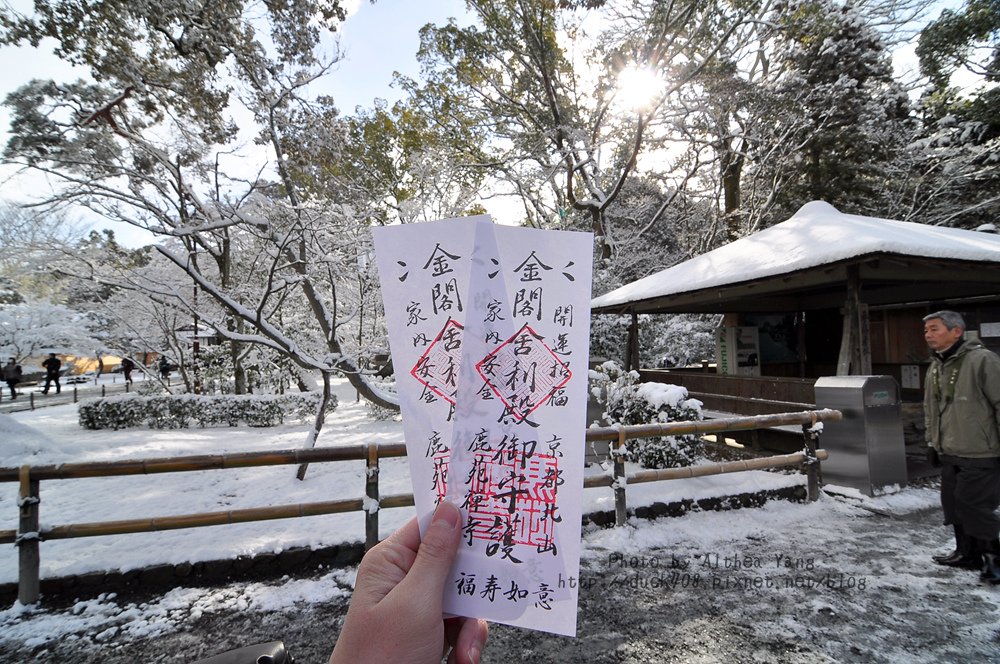 金閣舍利殿御守護
開運招福
家內安全
京都北山
鹿苑禅寺
如意
福寿
金閣舍利
家內安全
鹿苑
Photo by Althea Yang
http://duck708.pixnet.net/blog